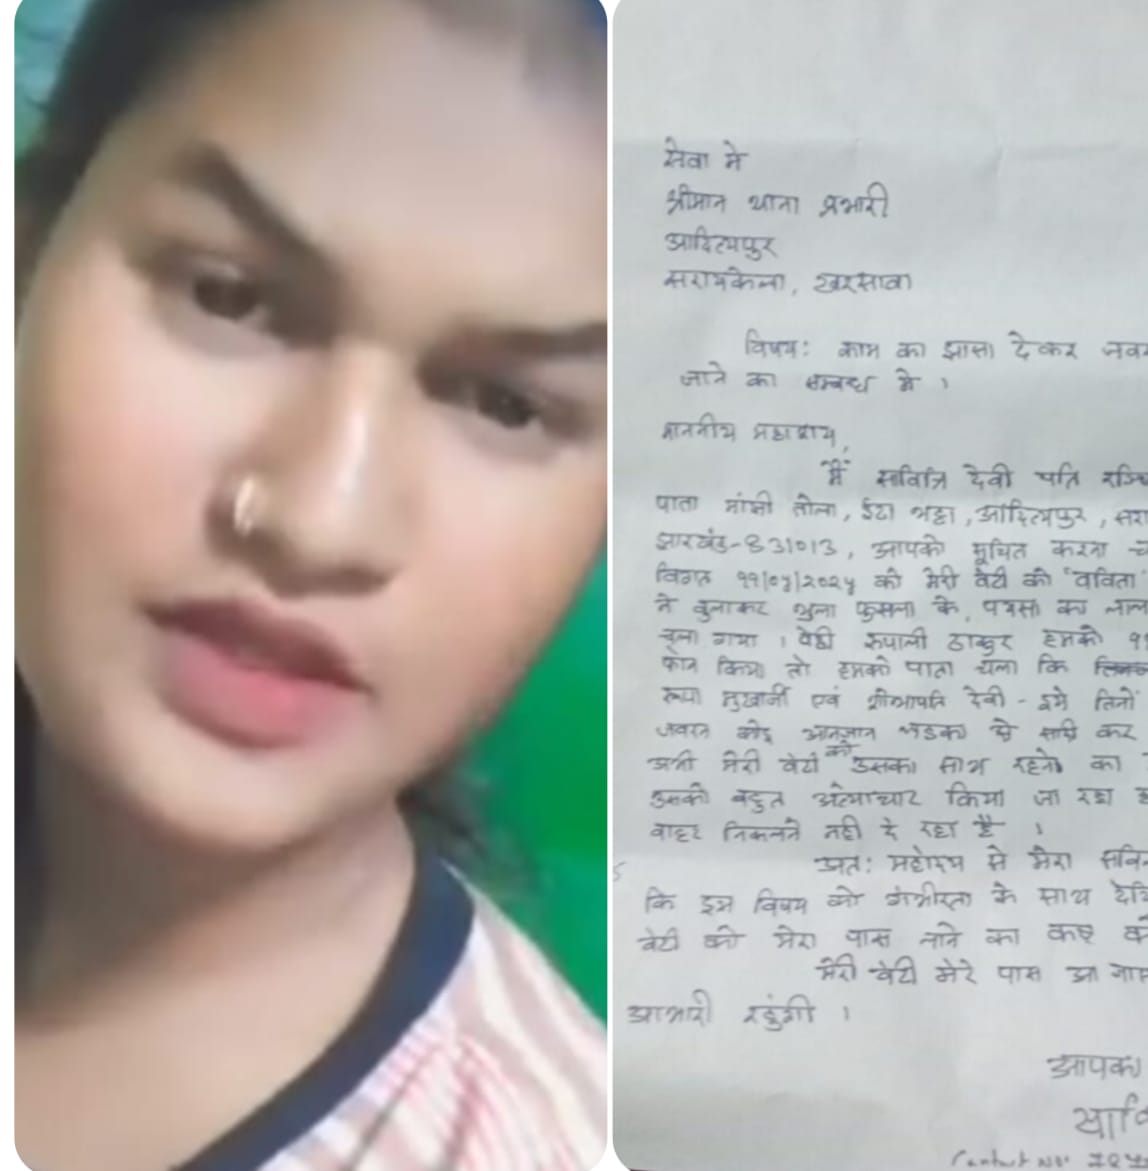 सेवा मे
श्रीमान थाना प्रभारी
आदित्यपुर
सरायकेला, खरसावा
विषय: काम का झासा देकर
जाने का सम्बन्ध मे ।
माननीय महाशय,
मैं सावित्रि देवी पति
पाता मांझी तोला, ईटा भट्टा, आदित्यपुर,
झारखंड-831013, आपको सूचित करना
विगत को मेरी बेटी को "बबिता
ने बुलाकर भुला फुसला के, पयसा का
चला गया । बेटी रूपाली ठाकुर हमको
फोन किया तो हमको पाता चला कि
रूपा मुखार्जी एवं देवी - इमे तिनो
जबरन कोइ आनजान लडका से सादि कर
अभी मेरी बेटी को उसका साथ रहने का
उसको बहुत अत्याचार किया जा रहा
बाहर निकलने नही दे रहा है ।
अत: महोदय से मेरा
कि इस विषय को गंभीरता के साथ
बेटी को मेरा पास लाने का कष्ट
मेरी बेटी मेरे पास आ
आभारी रहुंगी ।
आपका